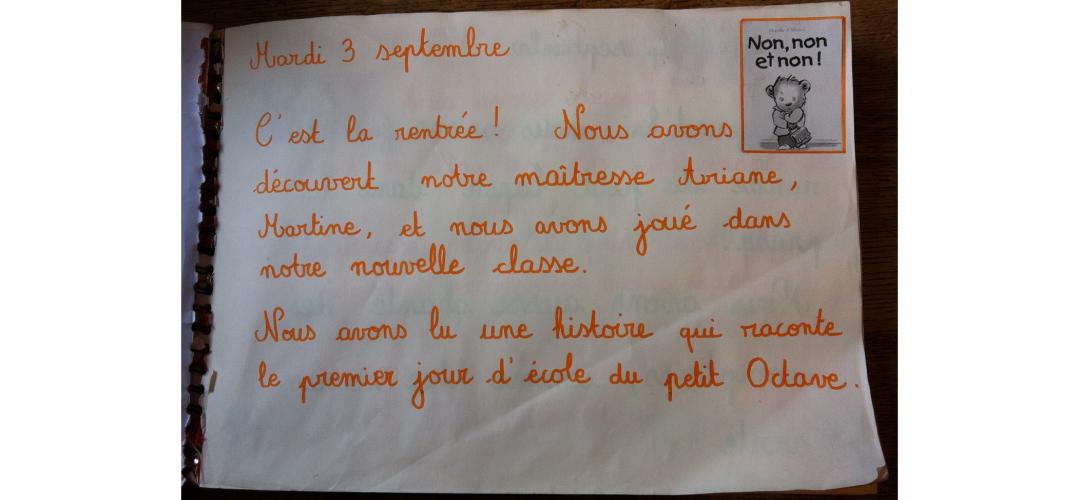 Mardi 3 septembre
Non, non
et non !
C'est la rentrée ! Nous avons
découvert notre maîtresse Ariane,
Martine, et nous avons joué dans
notre nouvelle classe.
Nous avons lu une histoire qui raconte
le premier jour d'école du petit Octave.